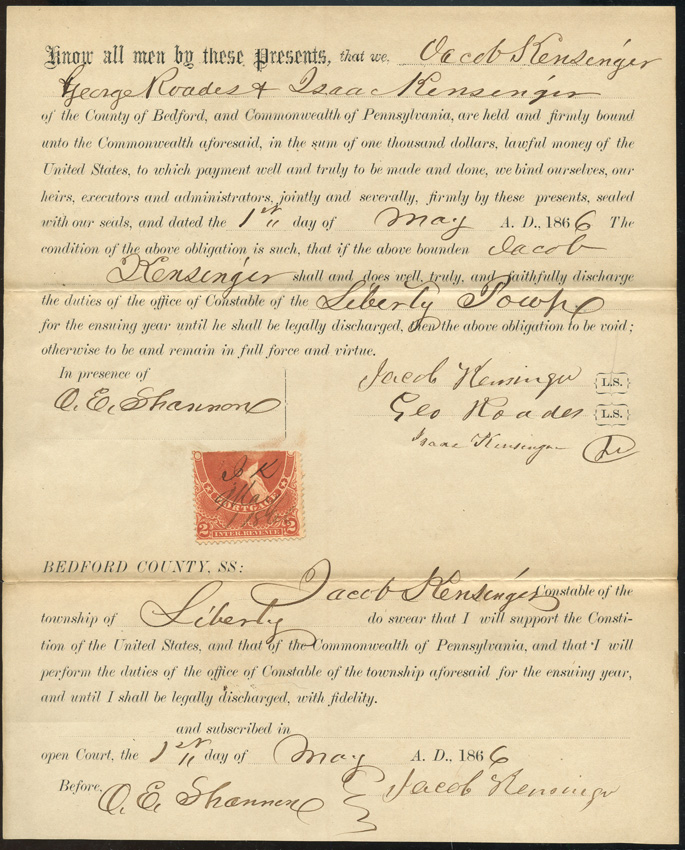 Know all men by these Presents, that we, Jacob Kensinger
George Roades & Isaac Kensinger
of the County of Bedford, and Commonwealth of Pennsylvania, are held and firmly bound
unto the Commonwealth aforesaid, in the sum of one thousand dollars, lawful money of the
United States, to which payment well and truly to be made and done, we bind ourselves, our
heirs, executors and administrators, jointly and severally, firmly by these presents, sealed
with our seals, and dated the 1st day of May A. D., 1866 The
condition of the above obligation is such, that if the above bounden Jacob
Kensinger shall and does well, truly, and faithfully discharge
the duties of the office of Constable of the Liberty Townp
for the ensuing year until he shall be legally discharged, then the above obligation to be void;
otherwise to be and remain in full force and virtue.
In presence of
O. E. Shannon
Jacob Kensinger {L.S.}
Geo Roades {L.S.}
Isaac Kensinger
J K
May
1 186
MORTGAGE
2 INTER. REVENUE 2
BEDFORD COUNTY, SS:
Jacob Kensinger Constable of the
township of Liberty do swear that I will support the Consti-
tion of the United States, and that of the Commonwealth of Pennsylvania, and that I will
perform the duties of the office of Constable of the township aforesaid for the ensuing year,
and until I shall be legally discharged, with fidelity.
and subscribed in
open Court, the 1st day of May A. D., 1866
Before, O. E. Shannon Jacob Kensinger